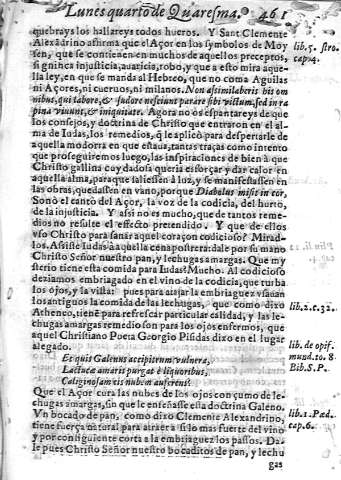 Lunes quarto de Quaresma. 461
quebrays los hallareys todos hueros. Y Sant Clemente
Alexãdrino affirma que el Açor en los symbolos de Moy
sen, que se contienen en muchos de aquellos preceptos,
significa injusticia, auaricia, robo, y que a esto mira aque
lla ley, en que se manda al Hebreo, que no coma Aguilas
ni Açores, ni cueruos, ni milanos. Non aßimilaberis his om
nibus, qui labore, & sudore nesciunt parare sibi victum, sed in ra
pina viuunt, & iniquitate. Agora no os espantareys de que
los consejos, y doctrina de Christo que entraron en el al
ma de Iudas, los remedios, q̃ le aplicó para despertarle de
aquella modorra en que estaua, tantas traças como intento
que proseguiremos luego, las inspiraciones de bien à que
Christo gallina cuydadosa queria esforçar y dar calor en
aquella alma, paraque saliessen à luz, y se manifestassen en
las obras, quedassen en vano, porque Diabolus misit in cor,
Sonò el cantò del Açor, la voz de la codicia, del hurto,
de la injusticia. Y assi no es mucho, que de tantos reme-
dios no resulte el effecto pretendido. Y que de ellos
vso Christo para sanar aquel coraçon codicioso? Mirad-
los. Assiste Iudas à aquella cena postrera: dale por su mano
Christo Señor nuestro pan, y lechugas amargas. Que my
sterio tiene esta comida para Iudas? Mucho. Al codicioso
deziamos embriagado en el vino de la codicia, que turba
los ojos, y la vista: pues para atajar la embriaguez vsauan
los antiguos la comida de las lechugas, que como dixo
Atheneo, tienē para refrescar particular calidad, y las le
chugas amargas remedio son para los ojos enfermos, que
aquel Christiano Poeta Georgio Pisidas dixo en el lugar
alegado.
Et quis Galenus accipitrum vulnera,
Lactucæ amaris purgat è liquoribus,
Caliginosam vis nubem auferens?
Que el Açor cura las nubes de los ojos con çumo de le-
chugas amargas, sin que le enseñasse esta doctrina Galeno.
Vn bocado de pan, como dixo Clemente Alexandrino,
tiene fuerça natural para atraer a si lo mas fuerte del vino
y por consiguiente corta a la embriaguez los passos. Da-
le pues Christo Señor nuestro bocaditos de pan, y lechu
gas
lib. 5. stro.
cap. 4.
lib. 2. c. 32.
lib. de opif.
mund. to. 8
Bib. S. P.
lib. 1. Pæd.
cap. 6.